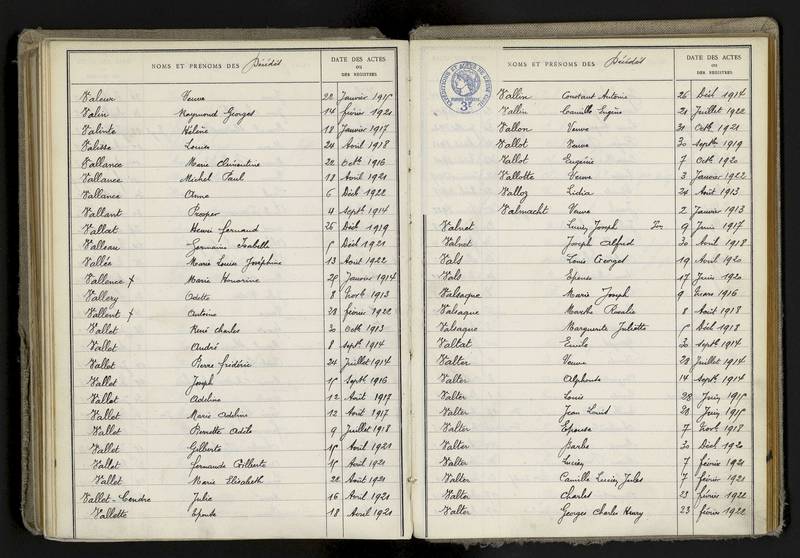 NOMS ET PRÉNOMS DES Décédés
DATE DES ACTES
OU
DES REGISTRES
Valeur Veuve 22 Janvier 1915
Valin Raymond Georges 14 février 1921
Valinte Hélène 18 Janvier 1917
Valisse Louise 24 Avril 1918
Vallance Marie Clémentine 22 Octb. 1916
Vallance Michel Paul 18 Avril 1921
Vallance Anna 6 Décb 1922
Vallant Prosper 4 Septb. 1914
Vallat Henri Fernand 26 Décb. 1919
Valleau Germaine Isabelle 5 Décb 1921
Vallée Marie Louise Joséphine 13 Avril 1922
Vallence x Marie Honorine 29 Janvier 1914
Vallery Odette 8 Novb. 1913
Vallent x Antoine 28 février 1922
Vallet René Charles 30 Octb. 1913
Vallet André 8 Septb. 1914
Vallet Pierre Frédéric 24 Juillet 1914
Vallet Joseph 15 Septb. 1916
Vallet Adeline 12 Août 1917
Vallet Marie Adeline 12 Août 1917
Vallet Pierrette Adèle 9 Juillet 1918
Vallet Gilberte 15 Avril 1921
Vallet Fernande Gilberte 15 Avril 1921
Vallet Marie Elisabeth 22 Août 1921
Vallet-Cendre Julie 16 Avril 1921
Vallette Epouse 18 Avril 1921
NOMS ET PRÉNOMS DES Décédés
DATE DES ACTES
OU
DES REGISTRES
3F
Vallin Constant Antoine 26 Décb 1914
Vallin Camille Eugène 21 Juillet 1922
Vallon Veuve 31 Octb. 1921
Vallot Veuve 30 Septb. 1919
Vallot Eugénie 7 Octb. 1920
Vallotte Veuve 3 Janvier 1922
Valloz Lidia 21 Août 1913
Valmacht Veuve 2 Janvier 1913
Valnet Lucien Joseph 9 Juin 1917
Valnet Joseph Alfred 30 Avril 1918
Vals Louis Georges 19 Avril 1920
Vals Epouse 17 Juin 1920
Valsaque Marie Joseph 9 Mars 1916
Valsaque Marthe Rosalie 8 Août 1918
Valsaque Marguerite Juliette 5 Décb 1918
Valtat Emile 30 Septb. 1914
Valter Veuve 28 Juillet 1914
Valter Alphonse 14 Septb. 1914
Valter Louis 28 Juin 1915
Valter Jean Louis 28 Juin 1915
Valter Epouse 7 Novb. 1918
Valter Barbe 30 Décb 1920
Valter Lucien 7 février 1921
Valter Camille Lucien Jules 7 février 1921
Valter Charles 23 février 1922
Valter Georges Charles Henry 23 février 1922